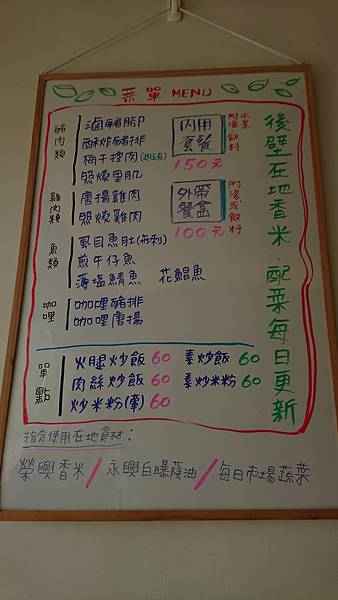 菜單 MENU
豬肉類
滷豬腳
酥炸豬排
梅干控肉
照燒里肌
雞肉類
唐揚雞肉
照燒雞肉
魚類
虱目魚肚(無刺)
煎午仔魚
薄塩鯖魚 花鯧魚
咖哩
咖哩豬排
咖哩唐揚
內用套餐
150元
附湯 飲料 水果
外帶餐盒
100元
附湯或飲料
後壁在地香米.配菜每日更新
單點
火腿炒飯 60 素炒飯 60
肉絲炒飯 60 素炒米粉 60
炒米粉(葷) 60
指定使用在地食材:
榮興香米/永興白曝蔭油/每日市場蔬菜